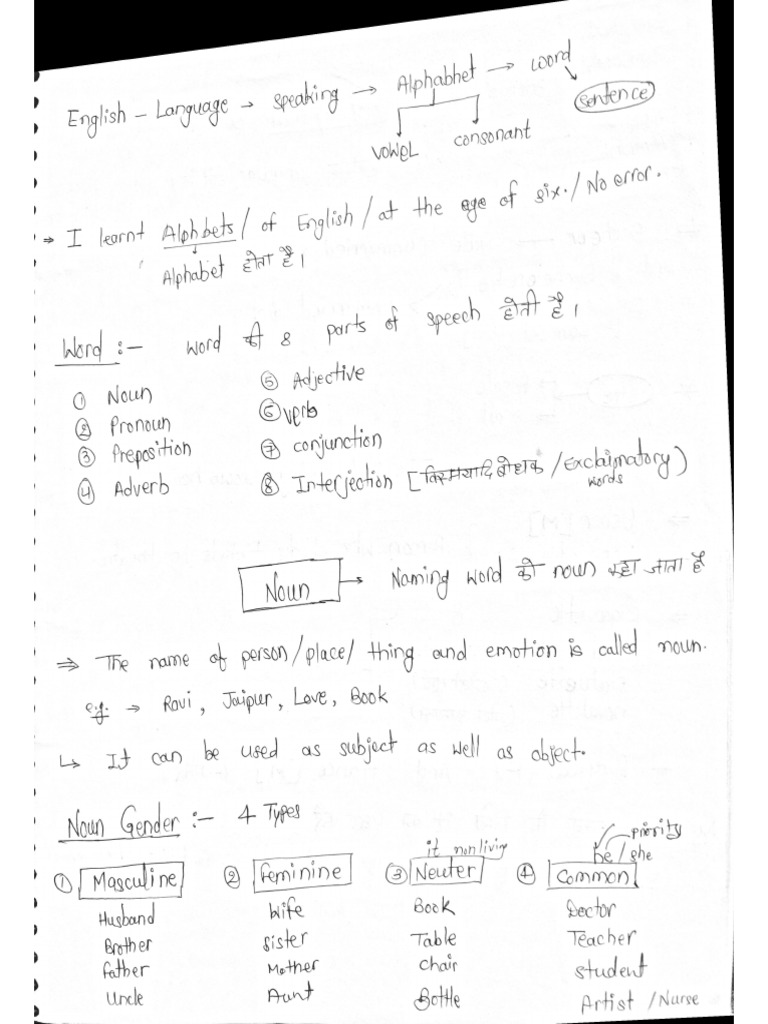 English - Language → speaking → Alphabhet → word
sentence
vowel consonant
→ I learnt Alphbets / of English / at the age of six. / No error.
Alphabet होता है।
Word :- word की 8 parts of speech होती है।
① Noun ⑤ Adjective
② Pronoun ⑥ verb
③ Preposition ⑦ conjunction
④ Adverb ⑧ Interjection [विस्मयादिबोधक / Exclaimatory)
words
Noun → Naming word को noun कहा जाता है
⇒ The name of person/place/ thing and emotion is called noun.
e.g. → Ravi, Jaipur, Love, Book
↳ It can be used as subject as well as object.
Noun Gender :- 4 Types
it nonliving he / she priority
① Masculine ② Feminine ③ Neuter ④ Common
Husband Wife Book Doctor
Brother Sister Table Teacher
Father Mother Chair Student
Uncle Aunt Bottle Artist / Nurse